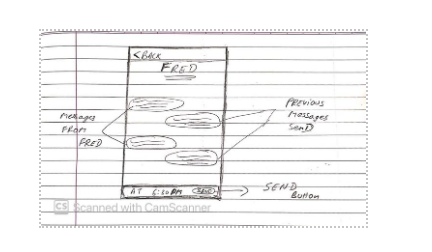 < BACK
FRED
Messages
FROM
FRED
PREVIOUS
Messages
SenD
AT 6:30 PM SEND
SEND
Button
CS Scanned with CamScanner